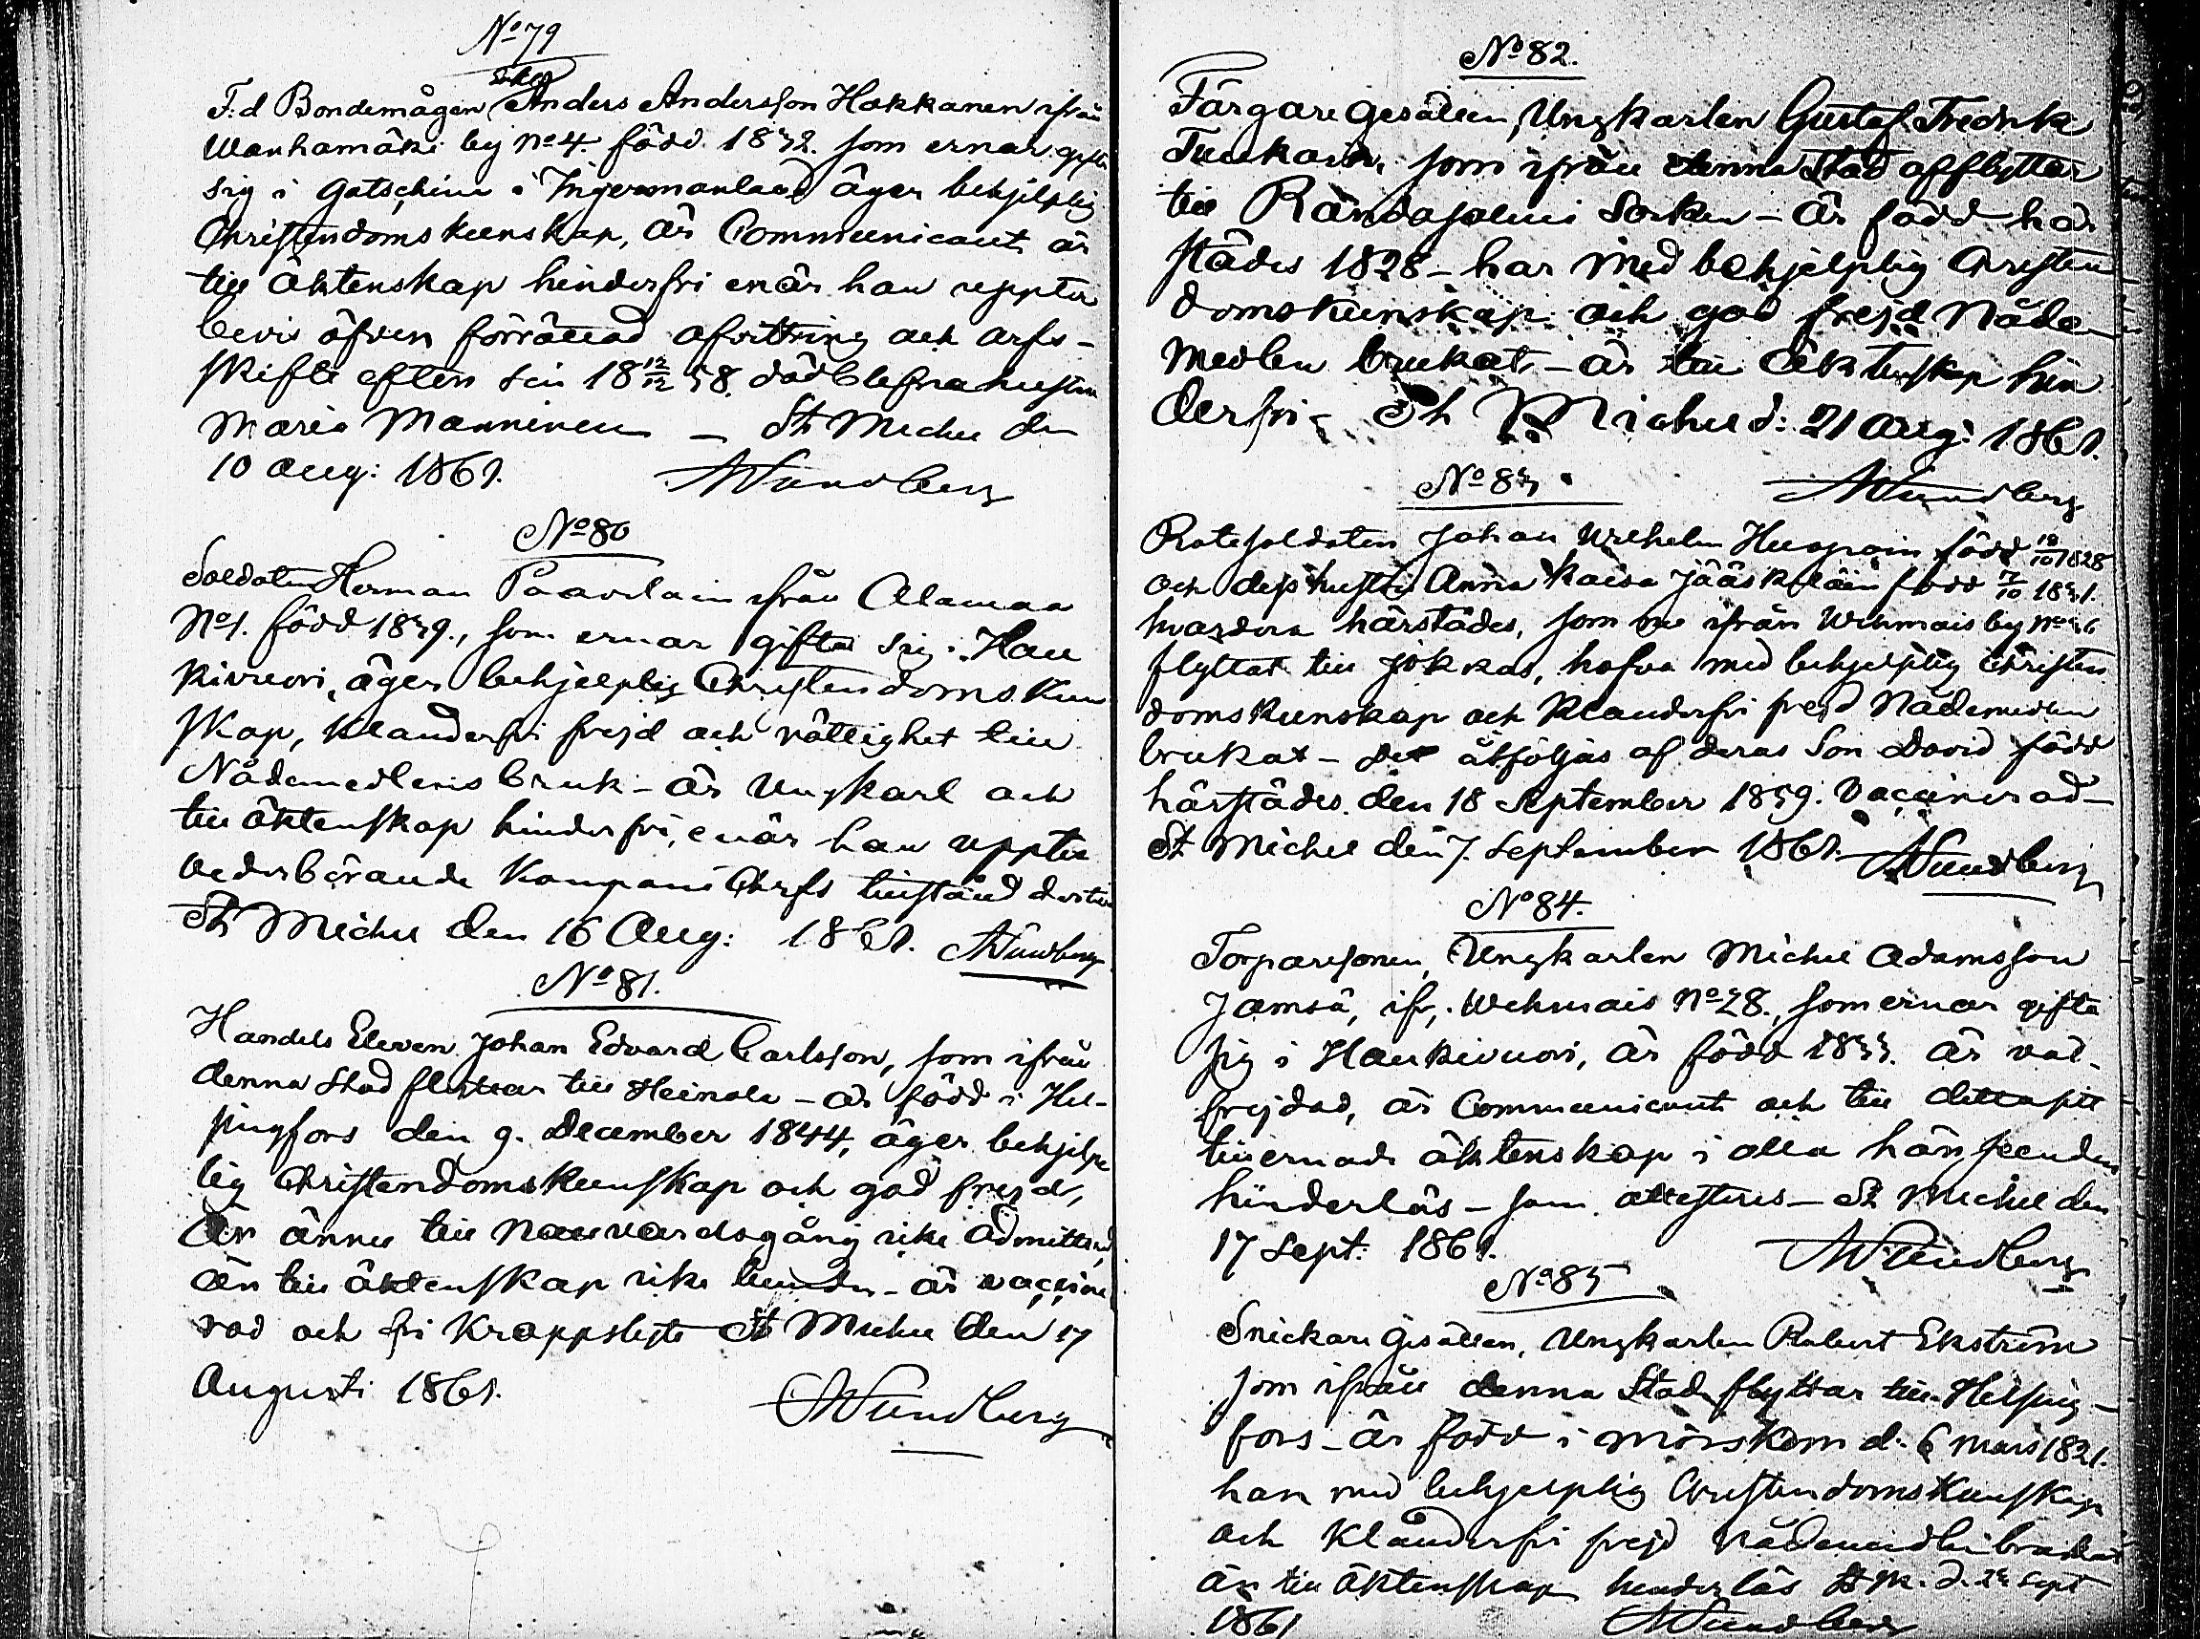 No 79
F.d Bondemågen Anders Andersson Hakkanen ifrån
Wanhamäki by No 4. född 1832. som ernar gifta
sig i Gatschina i Ingermanland äger behjelplig
Christendomskunskap, är Communicant är
till äktenskap hinderfri enär han uppter
bevis öfver förrättad afvittring och arfs-
skifte efter sin 18 12/12 58. död blefna hustru
Maria Manninen — St Michel den
10 Aug: 1861. AWundberg
No 80
Soldaten Herman Paavilain ifrån Alamaa
No 1. född 1839., som ernar gifta sig i Hau
kivuori, äger behjelplig Christendomskun
skap, klanderfri frejd och rättighet till
Nådemedlens bruk - är Ungkarl och
till äktenskap hinderfri, enär han uppter
vederbörande Kompani Chefs tillstånd dertill
St Michel den 16 Aug: 1861. AWundberg
No 81.
Handels Eleven Johan Edvard Carlsson, som ifrån
denna Stad flyttar till Heinola - är född i Hel-
singfors den 9. December 1844, äger behjelp
lig Christendomskunskap och god frejd,
är ännu till Nattvardsgång icke admitterad
är till äktenskap icke bunden - är vaccine
rad och fri kroppslyte St Michel den 17
Augusti 1861. AWundberg
No 82.
Färgare Gesällen, Ungkarlen Gustaf Fredrik
som ifrån denna Stad afflyttar
till Randasalmi Socken - är född här
städes 1828 - har med behjelplig Christen
domskunskap och god frejd Nåde-
medlen brukat - är till äktenskap hin
derfri - St Michel d: 21 Aug: 1861.
AWundberg
No 83
Rotesoldaten Johan Wilhelm Huopain född 18/10 1828
och dess hustru Anna Kaisa Jääskeläin född 7/10 1831.
hvardera härstädes, som nu ifrån Wehmais by No 36
flyttat till Jokkas, hafva med behjelplig Christen
domskunskap och klanderfri frejd Nådemedlen
brukat - De åtföljas af deras Son David född
härstädes den 18 September 1859. Vaccinerad -
St Michel den 7. September 1861. AWundberg
No 84.
Torparesonen, Ungkarlen Michel Adamsson
Jamsä, ifr, Wehmais No 28., som ernar gifta
sig i Haukivuori, är född 1833. är väl-
frejdad, är Communicant och till
tillernade äktenskap i alla hänseenden
hinderlös - som attesteras - St Michel den
17 Sept: 1861. AWundberg
No 85
Snickare Gesällen, Ungkarlen Robert Ekström
som ifrån denna Stad flyttar till Helsing-
fors - är född i Mörskom d: 6 Mars 1821.
har med behjelplig Christendomskunskap
och klanderfri frejd Nådemedlen brukat
är till äktenskap hinderlös St M. d. 23 Sept
1861 AWundberg